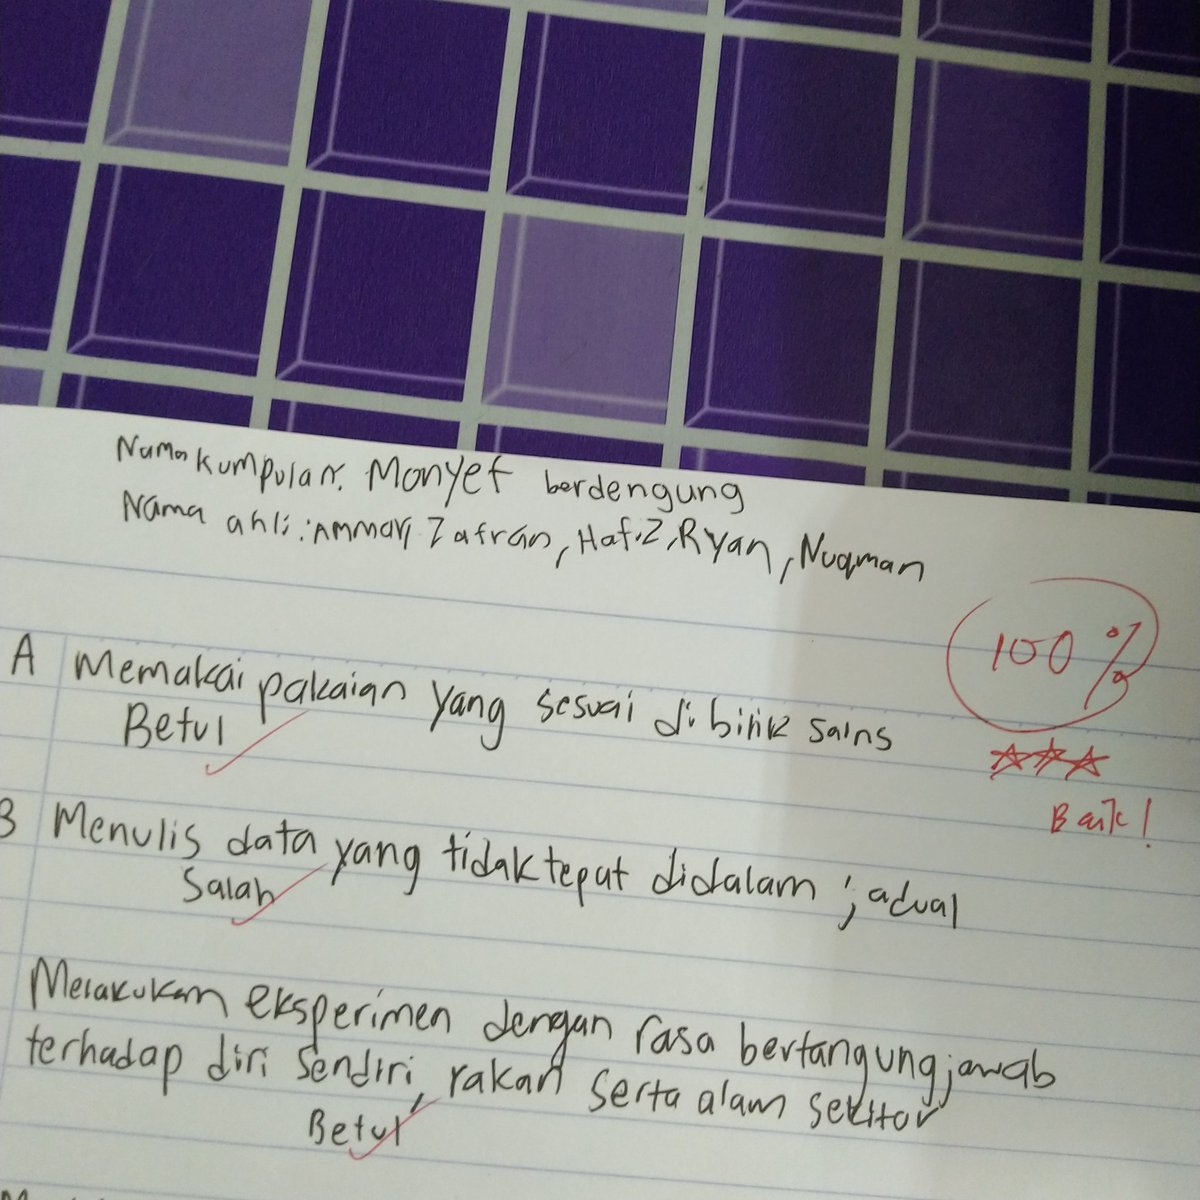 Nama kumpulan: Monyet berdengung
Nama ahli: Ammar, Zafran, Hafiz, Ryan, Nuqman
100%
A Memakai pakaian yang sesuai di bilik sains
Betul
Baik!
B Menulis data yang tidak tepat didalam jadual
Salah
Melakukan eksperimen dengan rasa bertangungjawab
terhadap diri sendiri, rakan serta alam sekitar
Betul